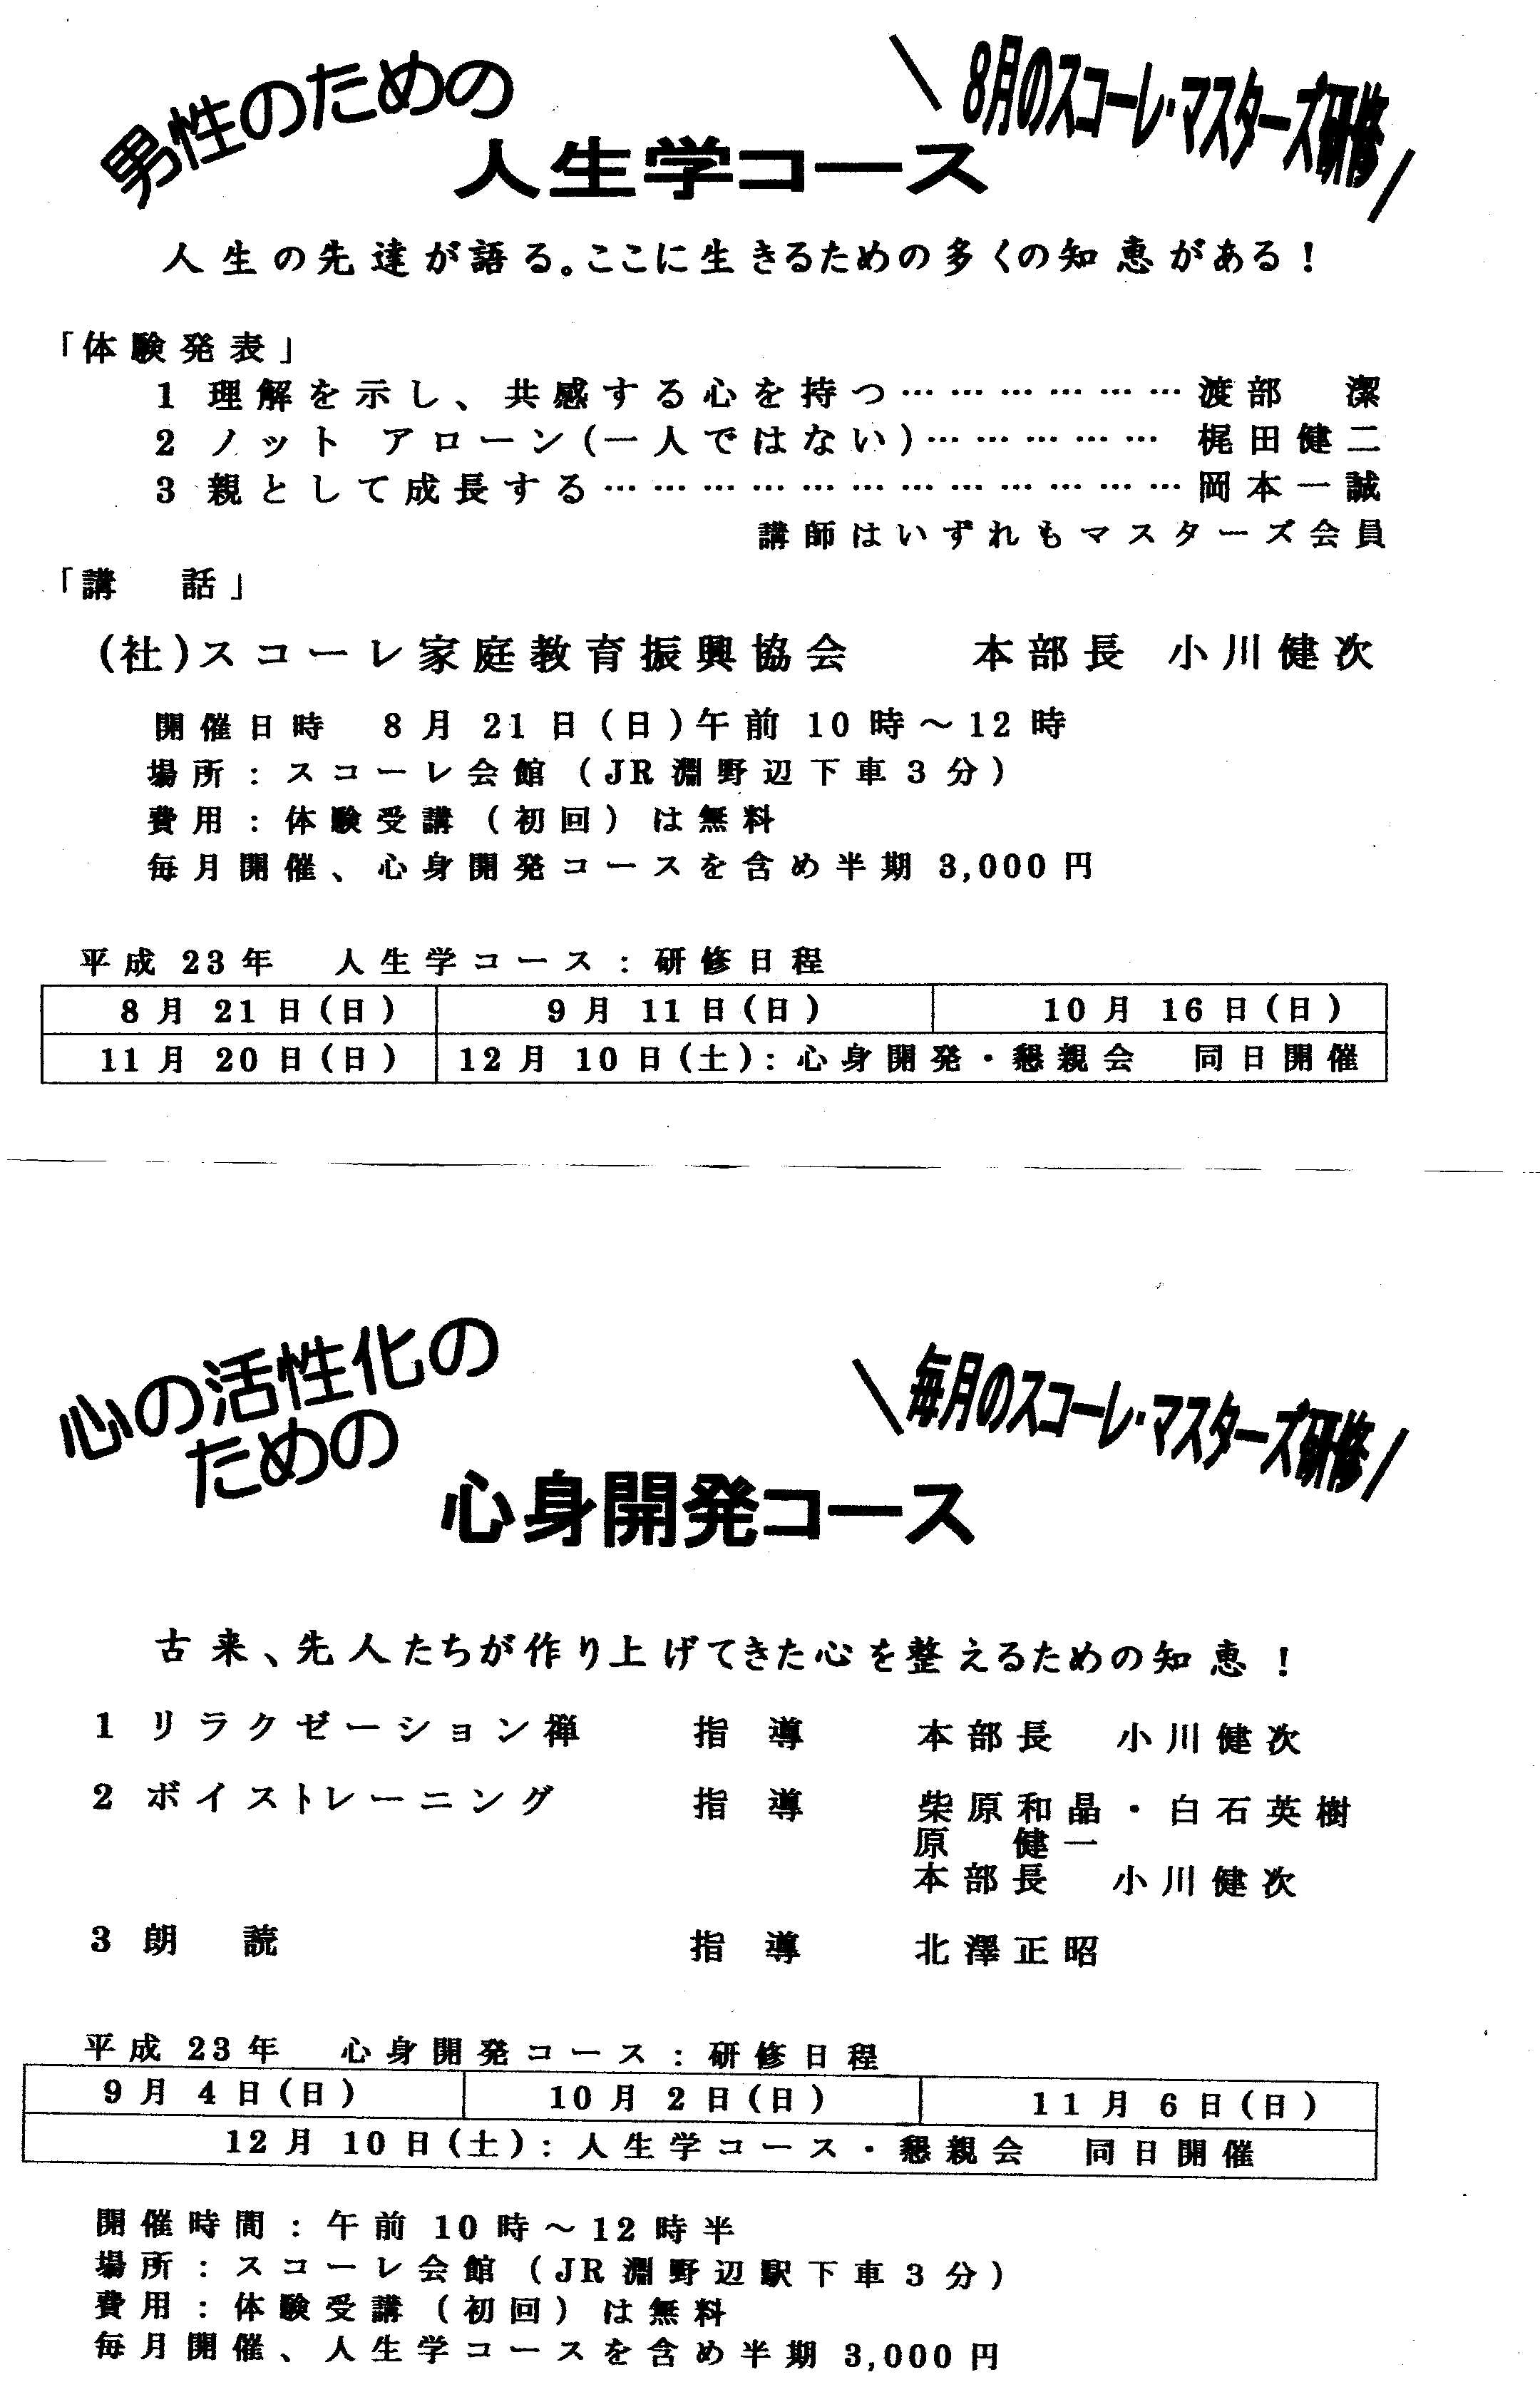 男性のための
人生学コース
8月のスコーレ・マスターズ研修
人生の先達が語る。ここに生きるための多くの知恵がある！
「体験発表」
1 理解を示し、共感する心を持つ………………渡部 潔
2 ノット アローン(一人ではない)…………… 梶田健二
3 親として成長する…………………………………岡本一誠
講師はいずれもマスターズ会員
「講 話」
(社)スコーレ家庭教育振興協会 本部長 小川健次
開催日時 8月21日(日)午前10時～12時
場所：スコーレ会館（JR淵野辺下車3分）
費用：体験受講（初回）は無料
毎月開催、心身開発コースを含め半期3,000円
平成23年 人生学コース：研修日程
8月21日(日) 9月11日(日) 10月16日(日)
11月20日(日) 12月10日(土)：心身開発・懇親会 同日開催
心の活性化の
ための
心身開発コース
毎月のスコーレ・マスターズ研修
古来、先人たちが作り上げてきた心を整えるための知恵！
1 リラクゼーション禅 指導 本部長 小川健次
2 ボイストレーニング 指導 柴原和晶・白石英樹
原 健一
本部長 小川健次
3 朗 読 指導 北澤正昭
平成23年 心身開発コース：研修日程
9月4日(日) 10月2日(日) 11月6日(日)
12月10日(土)：人生学コース・懇親会 同日開催
開催時間：午前10時～12時半
場所：スコーレ会館（JR淵野辺駅下車3分）
費用：体験受講（初回）は無料
毎月開催、人生学コースを含め半期3,000円